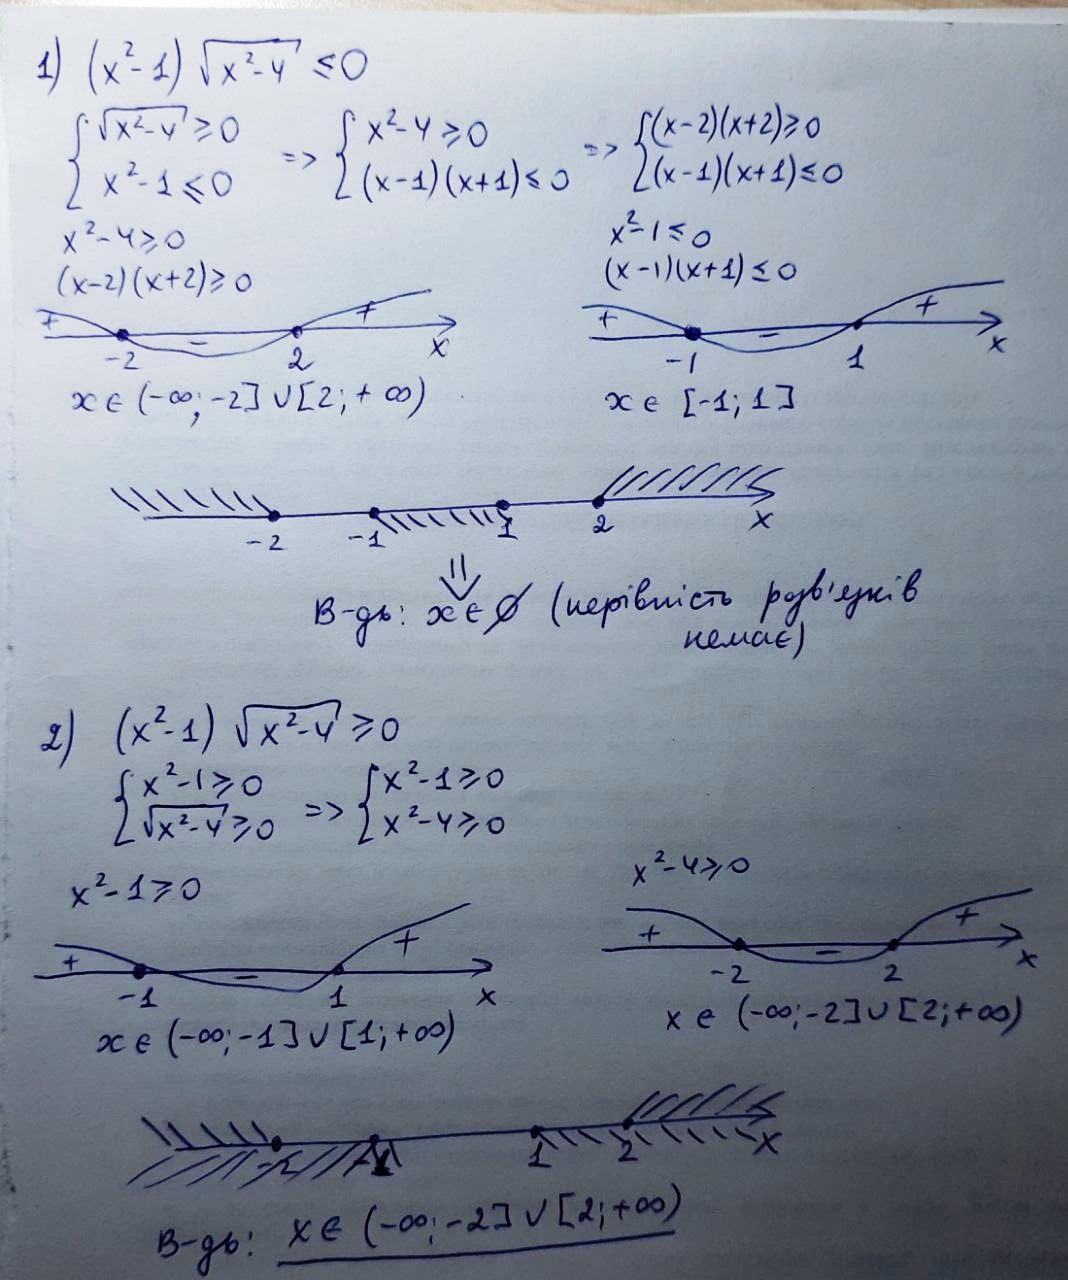 1) (x²-1) √(x²-4) ≤ 0
{ √(x²-4) ≥ 0 => { x²-4 ≥ 0 => { (x-2)(x+2) ≥ 0
x²-1 ≤ 0 (x-1)(x+1) ≤ 0 (x-1)(x+1) ≤ 0
x²-4 ≥ 0
(x-2)(x+2) ≥ 0
+ - +
-2 2 x
x ∈ (-∞; -2] ∪ [2; +∞)
x²-1 ≤ 0
(x-1)(x+1) ≤ 0
+ - +
-1 1 x
x ∈ [-1; 1]
-2 -1 1 2 x
⇓
В-дь: x ∈ ∅ (нерівність розв'язків
немає)
2) (x²-1) √(x²-4) ≥ 0
{ x²-1 ≥ 0 => { x²-1 ≥ 0
√(x²-4) ≥ 0 x²-4 ≥ 0
x²-1 ≥ 0
+ - +
-1 1 x
x ∈ (-∞; -1] ∪ [1; +∞)
x²-4 ≥ 0
+ - +
-2 2 x
x ∈ (-∞; -2] ∪ [2; +∞)
-2 -1 1 2 x
В-дь: x ∈ (-∞; -2] ∪ [2; +∞)